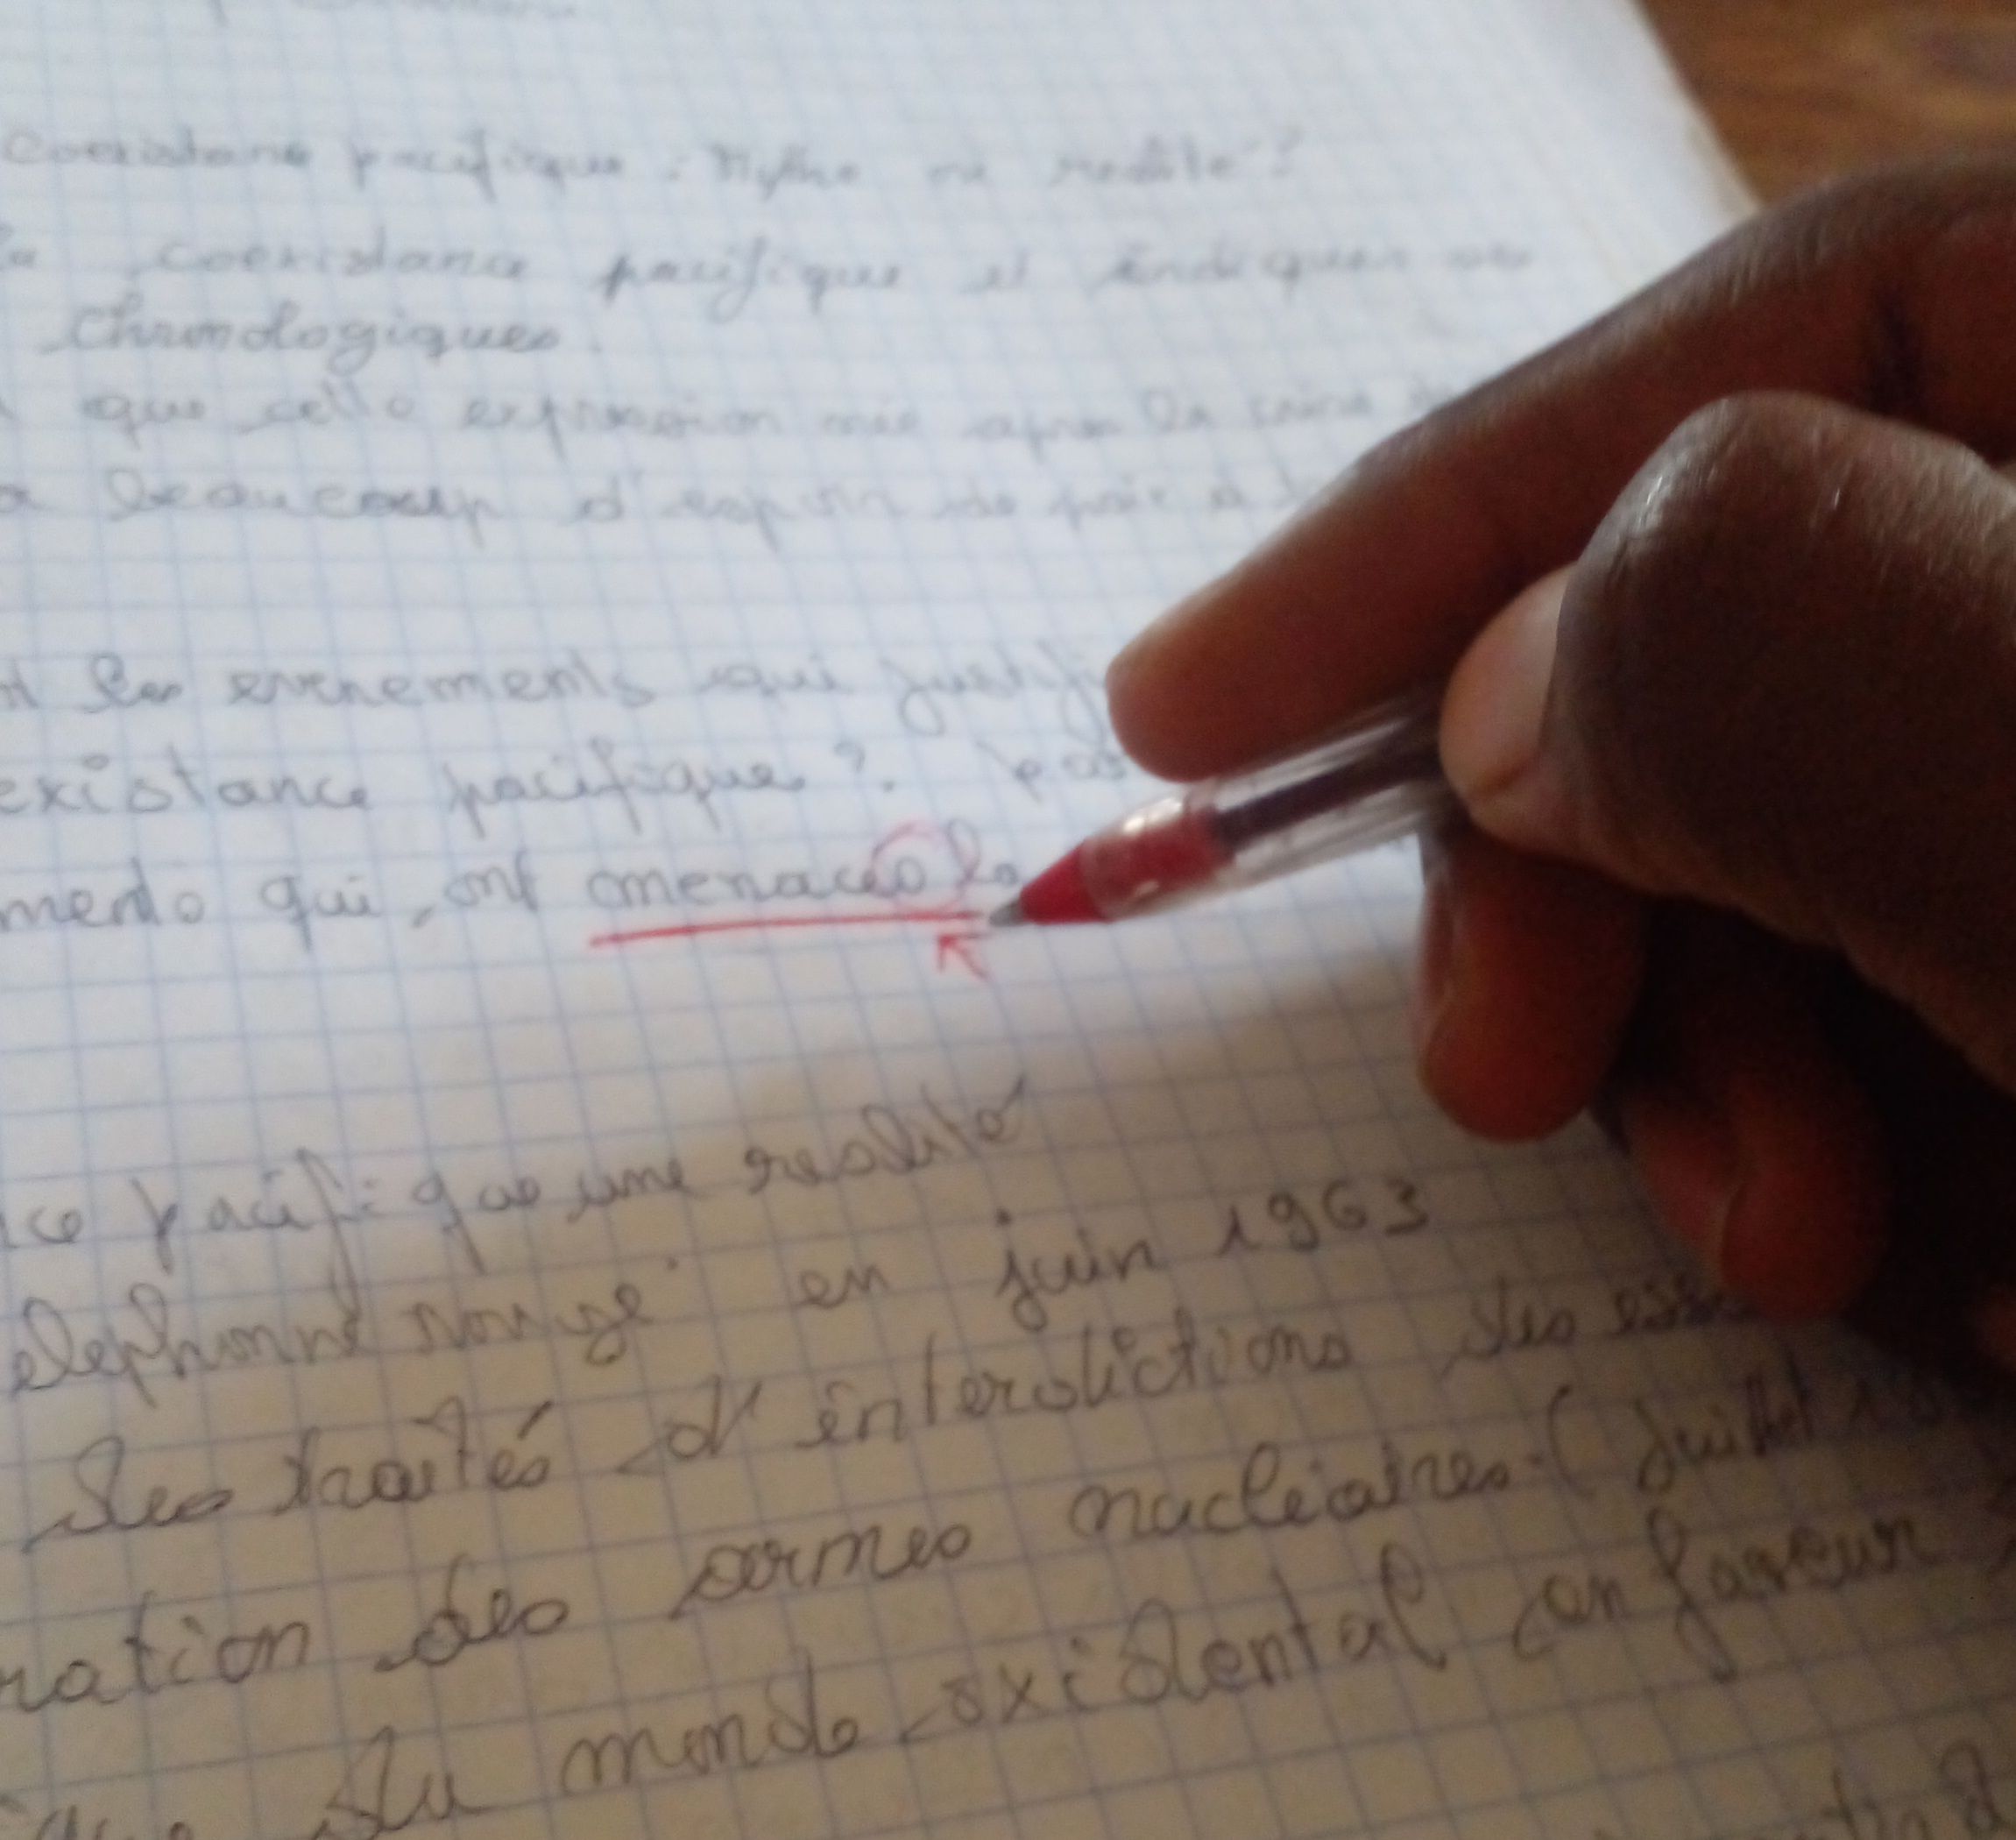 coexistance pacifique : Mythe ou realité ?
la coexistance pacifique et indiquer ses
Chronologiques.
que cette expression mis après la crise
a beaucoup d'espoir de paix à
les evenements qui justifi
existance pacifique ?.
ments qui, ont menaces la
ce pacifique une realité
elephonne rouge en juin 1963
Les traités d'interdictions des essa
ration des armes nucléaires. ( juillet
du monde oxidental en faveur